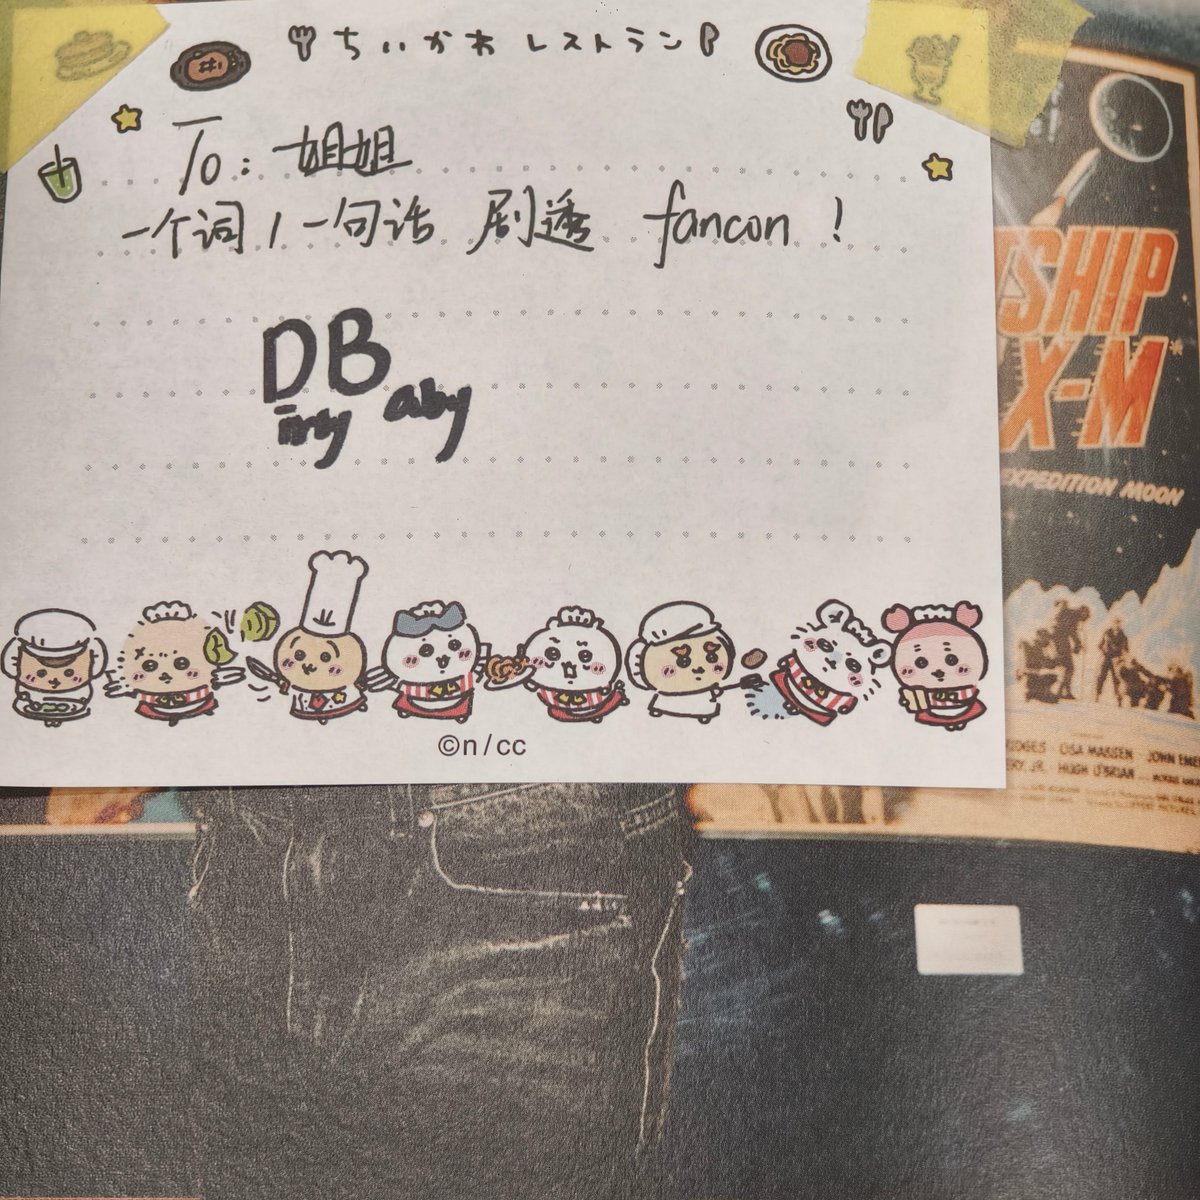 ちいかわ レストラン
To: 姐姐
一个词 / 一句话 剧透 fancon !
DB
irty aby
©n/cc
TSHIP
X-M
EXPEDITION MOON
OSA MASSEN JOHN EME
HUGH O'BRIAN